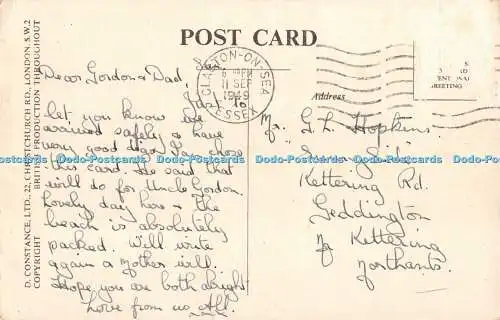 POST CARD
D. CONSTANCE, LTD., 22, CHRISTCHURCH RD., LONDON, S.W.2
COPYRIGHT BRITISH PRODUCTION THROUGHOUT
CLACTON-ON-SEA
6 PM
11 SEP
1949
ESSEX
Dear Gordon & Dad,
Just to
let you know we
arrived safely & have
very good digs. Ian chose
this card. He said that
will do for Uncle Gordon.
Lovely day here & the
beach is absolutely
packed. Will write
again & Mother will.
Hope you are both alright
Love from us All.
Address
Mr. G. L. Hopkins.
Kettering Rd.
Geddington
Nr Kettering
Northants.
GREETING
Dodo-Postcards Dodo-Postcards Dodo-Postcards Dodo-Postcards Dodo-Postcards